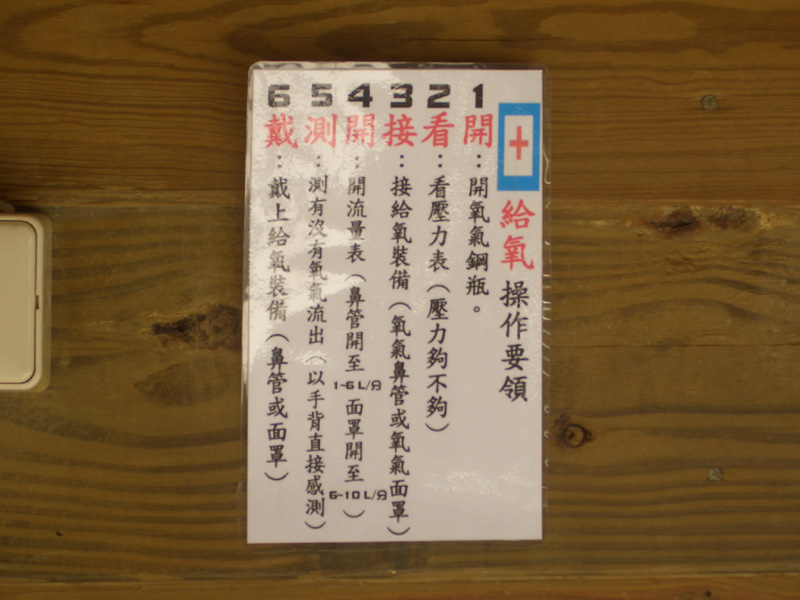 給氧操作要領
1開：開氧氣鋼瓶。
2看：看壓力表（壓力夠不夠）
3接：接給氧裝備（氧氣鼻管或氧氣面罩）
4開：開流量表（鼻管開至1~6L/分 面罩開至6~10L/分）
5測：測有沒有氧氣流出（以手背直接感測）
6戴：戴上給氧裝備（鼻管或面罩）